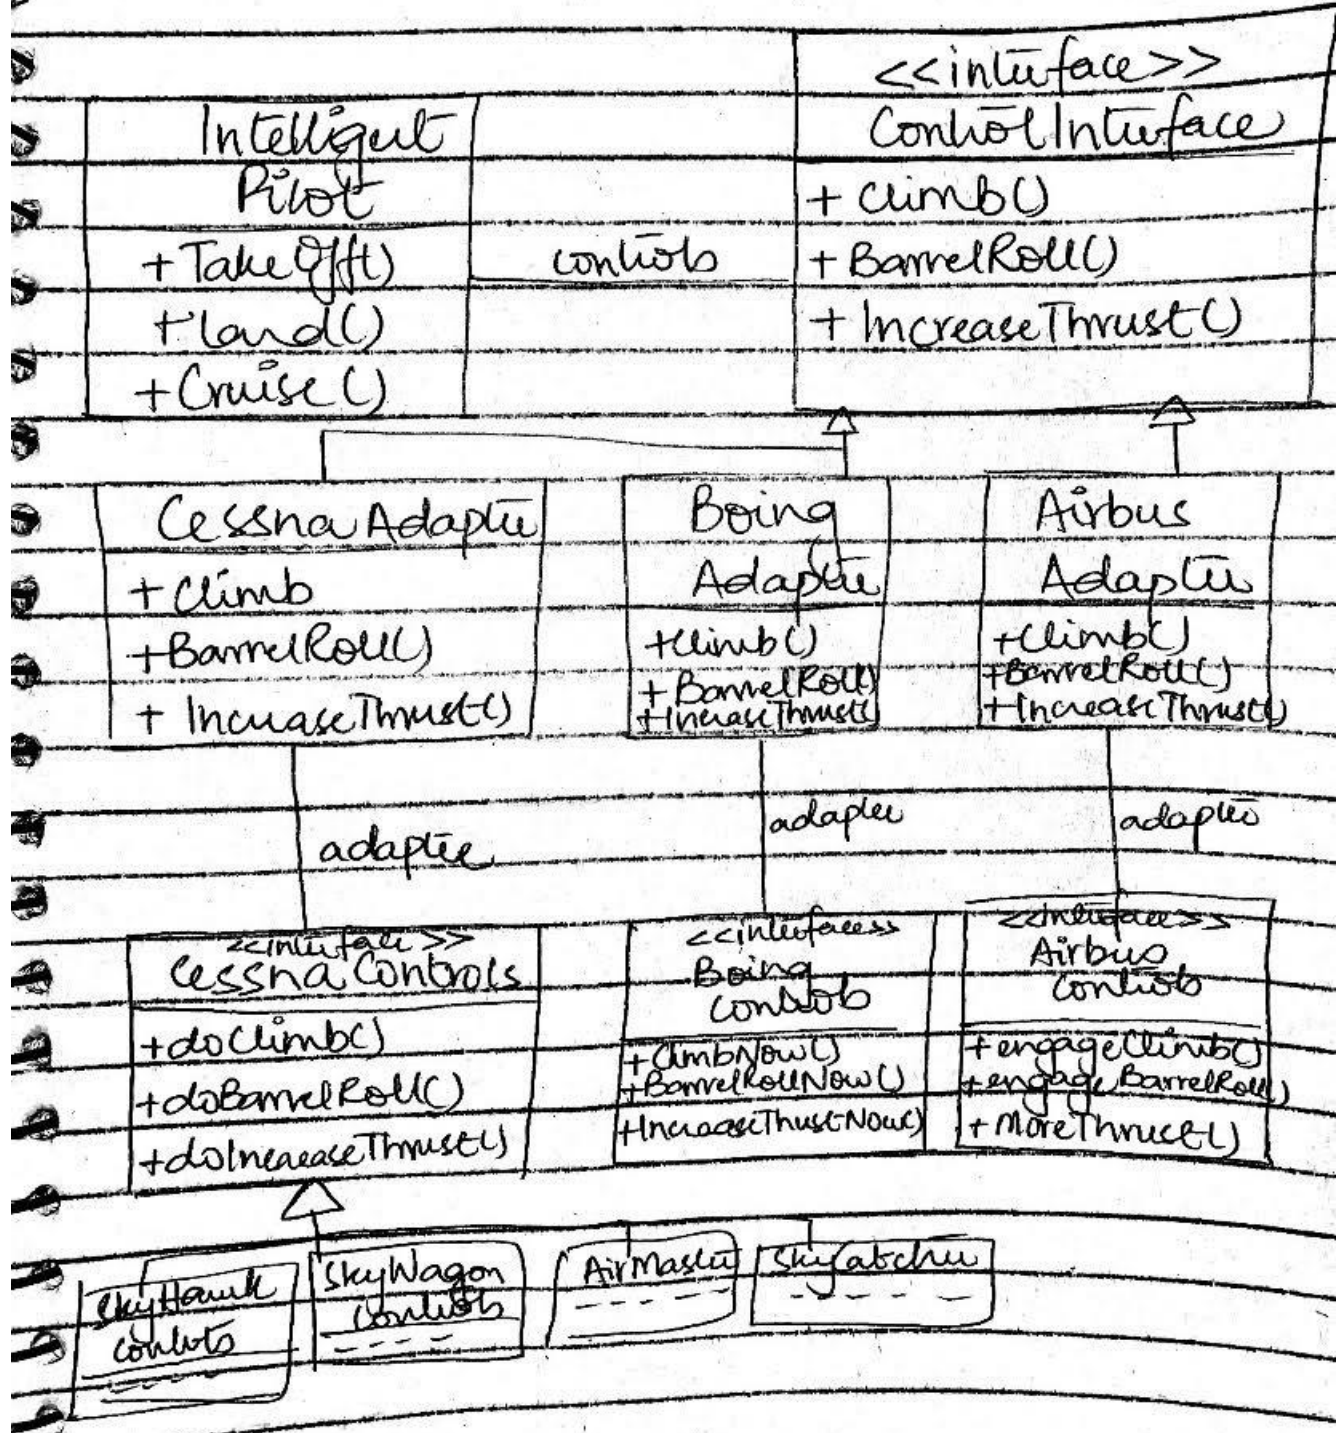 <<interface>>
ControlInterface
+ Climb()
+ BarrelRoll()
+ IncreaseThrust()
Intelligent
Pilot
+TakeOff()
+Land()
+Cruise()
controls
Cessna Adapter
+ Climb
+BarrelRoll()
+ IncreaseThrust()
Boing
Adapter
+Climb()
+ BarrelRoll()
+IncreaseThrust()
Airbus
Adapter
+Climb()
+BarrelRoll()
+IncreaseThrust()
adaptee
adaptee
<<interface>>
Cessna Controls
+doClimb()
+doBarrelRoll()
+doIncreaseThrust()
<<interface>>
Boing
Controls
+ClimbNow()
+BarrelRollNow()
+IncreaseThustNow()
<<interface>>
Airbus
Controls
+engageClimb()
+engageBarrelRoll()
+ MoreThrust()
SkyHawk
Controls
SkyWagon
Controls
AirMaster
SkyCatcher